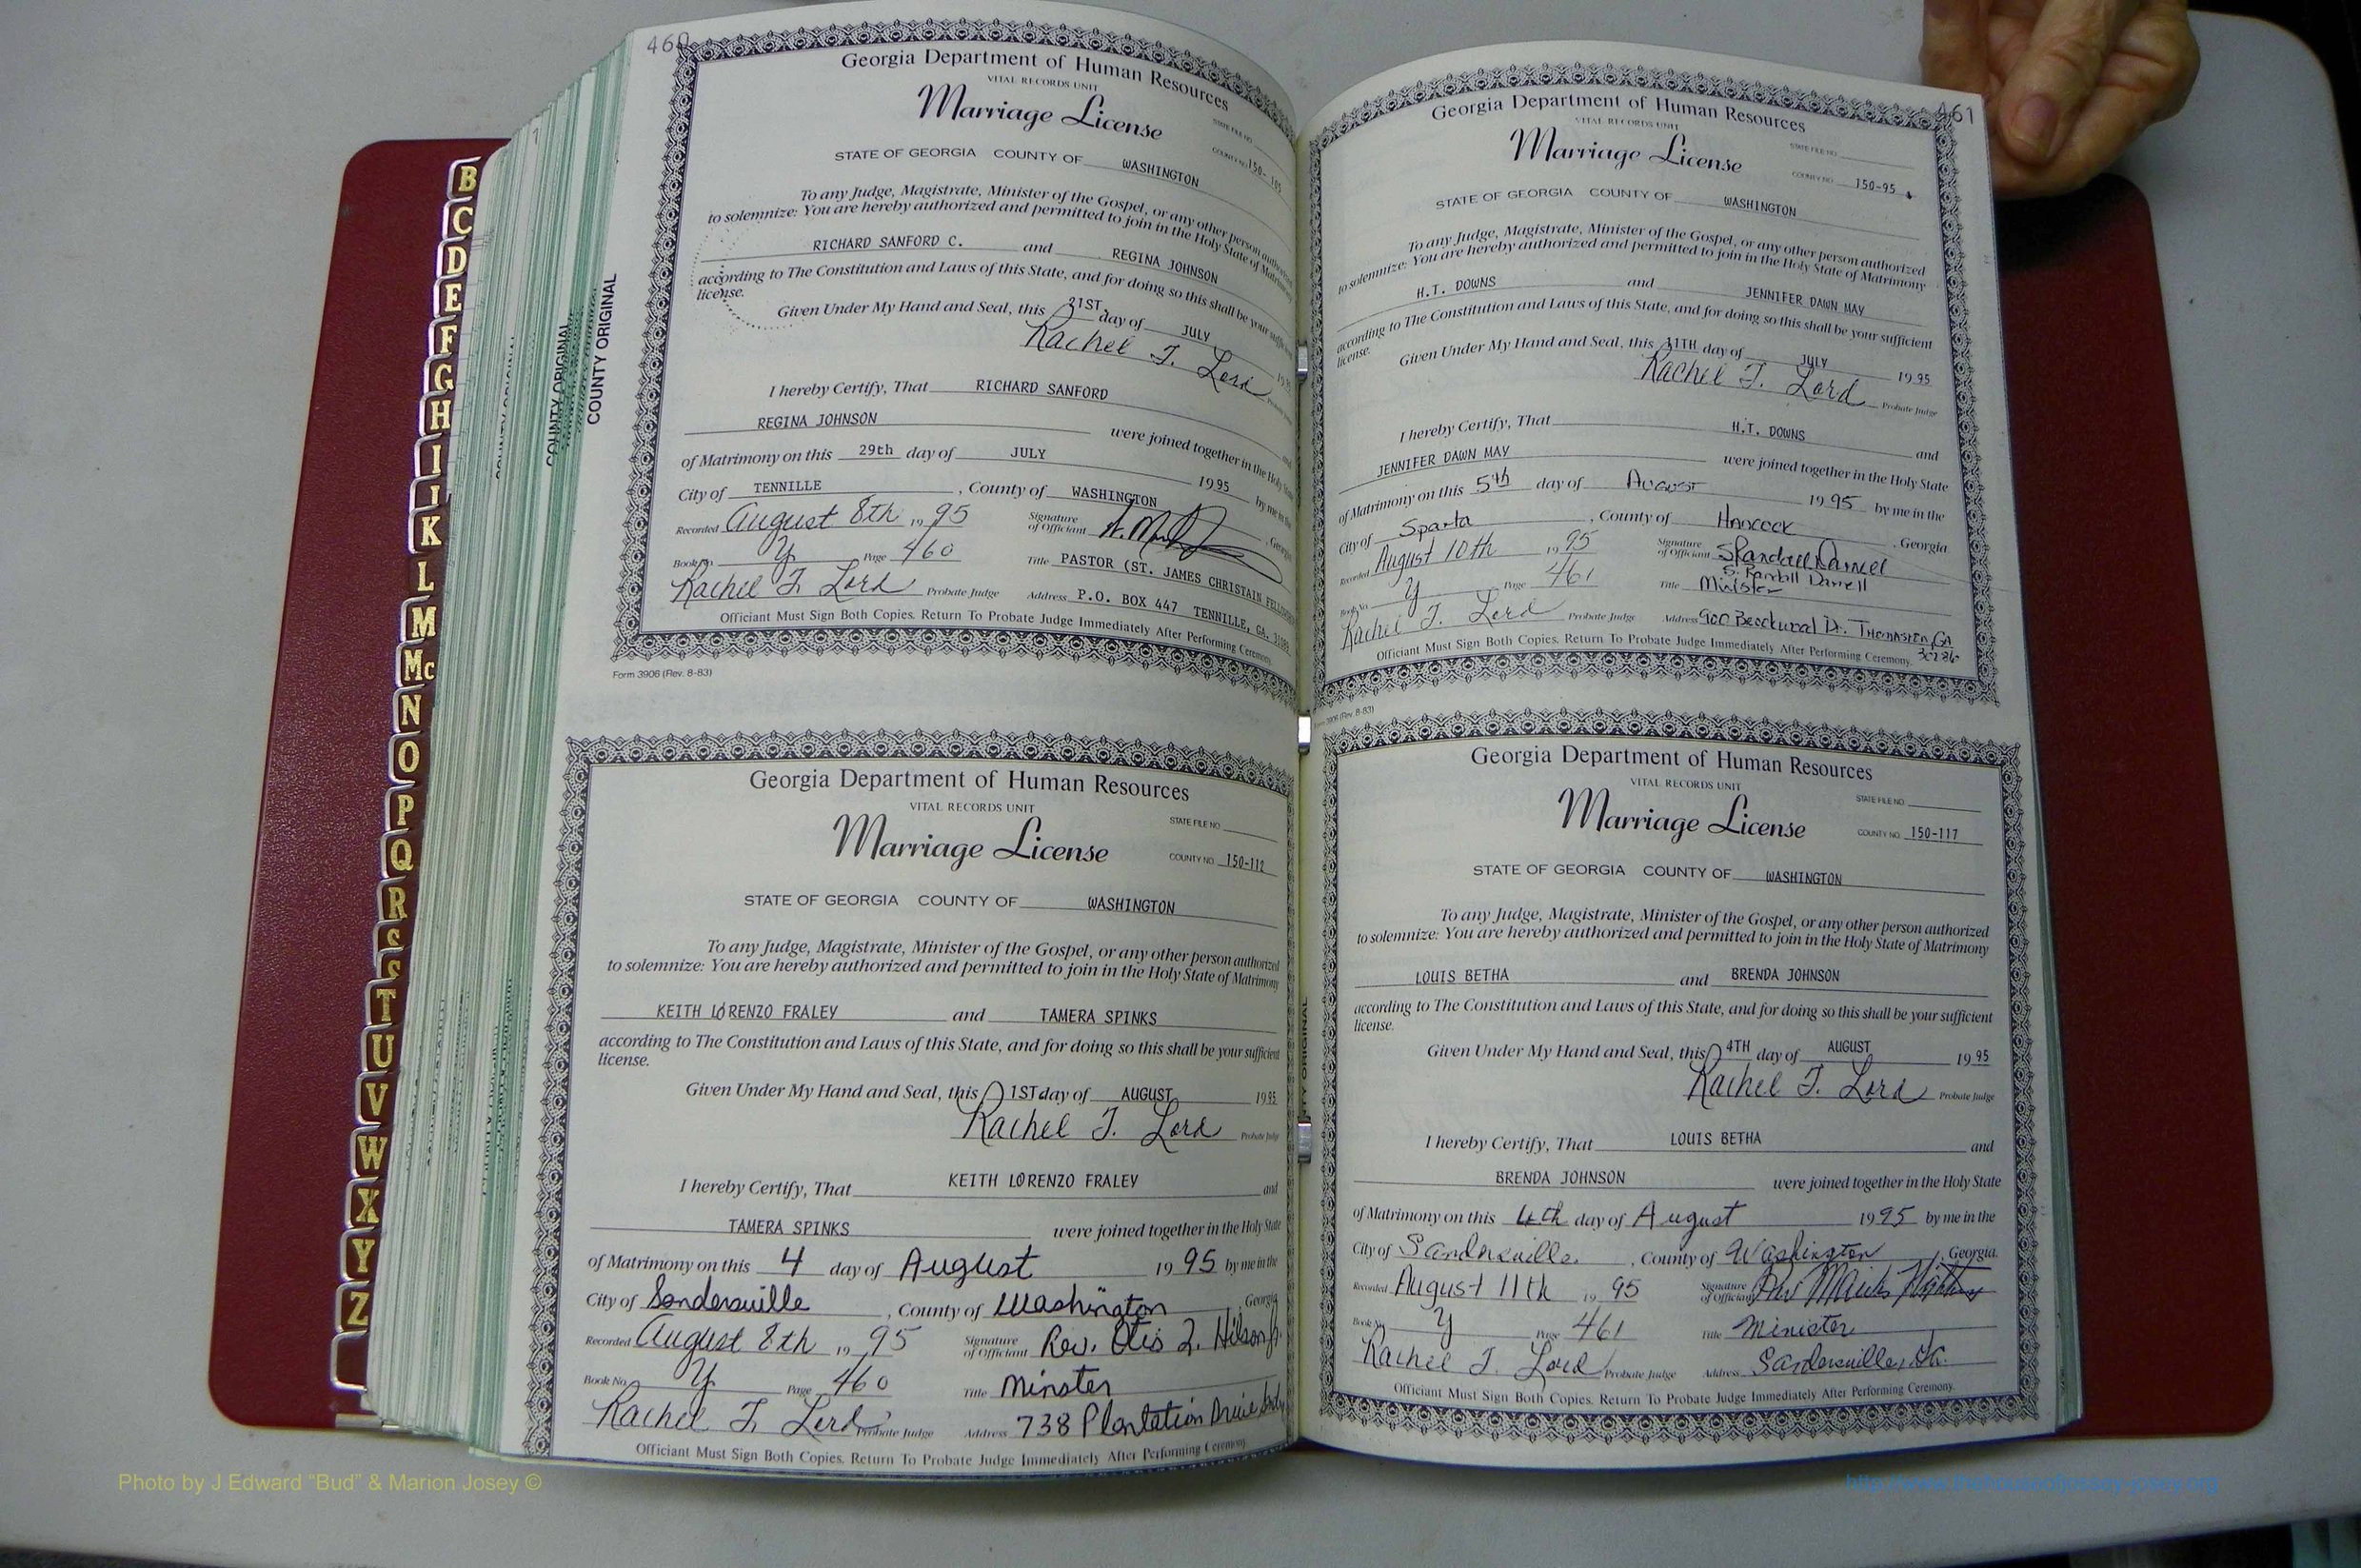 460
Georgia Department of Human Resources
VITAL RECORDS UNIT
Marriage License
STATE FILE NO.
COUNTY NO. 150-
STATE OF GEORGIA COUNTY OF WASHINGTON
To any Judge, Magistrate, Minister of the Gospel, or any other person authorized
to solemnize: You are hereby authorized and permitted to join in the Holy State of Matrimony
RICHARD SANFORD C. and REGINA JOHNSON
according to The Constitution and Laws of this State, and for doing so this shall be your sufficient
license.
Given Under My Hand and Seal, this 21ST day of JULY
Rachel T. Lord
I hereby Certify, That RICHARD SANFORD and
REGINA JOHNSON were joined together in the Holy State
of Matrimony on this 29th day of JULY 1995 by me in the
City of TENNILLE, County of WASHINGTON, Georgia
Recorded August 8th, 1995 Signature of Officiant
Book No. Y Page 460 Title PASTOR (ST. JAMES CHRISTAIN
Rachel T. Lord Probate Judge Address P.O. BOX 447 TENNILLE, GA.
Officiant Must Sign Both Copies. Return To Probate Judge Immediately After Performing Ceremony
Form 3906 (Rev. 8-83)
Georgia Department of Human Resources
VITAL RECORDS UNIT
Marriage License
STATE FILE NO.
COUNTY NO. 150-112
STATE OF GEORGIA COUNTY OF WASHINGTON
To any Judge, Magistrate, Minister of the Gospel, or any other person authorized
to solemnize: You are hereby authorized and permitted to join in the Holy State of Matrimony
KEITH LORENZO FRALEY and TAMERA SPINKS
according to The Constitution and Laws of this State, and for doing so this shall be your sufficient
license.
Given Under My Hand and Seal, this 1ST day of AUGUST 1995
Rachel T. Lord Probate Judge
I hereby Certify, That KEITH LORENZO FRALEY and
TAMERA SPINKS were joined together in the Holy State
of Matrimony on this 4 day of August 1995 by me in the
City of Sandersville, County of Washington, Georgia
Recorded August 8th, 1995 Signature of Officiant Rev. Otis
Book No. Y Page 460 Title Minster
Rachel T. Lord Probate Judge Address 738 Plantation Drive
Officiant Must Sign Both Copies. Return To Probate Judge Immediately After Performing Ceremony
461
Georgia Department of Human Resources
VITAL RECORDS UNIT
Marriage License
STATE FILE NO.
COUNTY NO. 150-95
STATE OF GEORGIA COUNTY OF WASHINGTON
To any Judge, Magistrate, Minister of the Gospel, or any other person authorized
to solemnize: You are hereby authorized and permitted to join in the Holy State of Matrimony
H.T. DOWNS and JENNIFER DAWN MAY
according to The Constitution and Laws of this State, and for doing so this shall be your sufficient
license.
Given Under My Hand and Seal, this 11TH day of JULY 1995
Rachel T. Lord Probate Judge
I hereby Certify, That H.T. DOWNS and
JENNIFER DAWN MAY were joined together in the Holy State
of Matrimony on this 5th day of August 1995 by me in the
City of Sparta, County of Hancock, Georgia
Recorded August 10th 1995 Signature of Officiant
Book No. Y Page 461 Title Minister
Rachel T. Lord Probate Judge Address 900 Thomaston, GA
Officiant Must Sign Both Copies. Return To Probate Judge Immediately After Performing Ceremony.
3906 (Rev. 8-83)
Georgia Department of Human Resources
VITAL RECORDS UNIT
Marriage License
STATE FILE NO.
COUNTY NO. 150-117
STATE OF GEORGIA COUNTY OF WASHINGTON
To any Judge, Magistrate, Minister of the Gospel, or any other person authorized
to solemnize: You are hereby authorized and permitted to join in the Holy State of Matrimony
LOUIS BETHA and BRENDA JOHNSON
according to The Constitution and Laws of this State, and for doing so this shall be your sufficient
license.
Given Under My Hand and Seal, this 4TH day of AUGUST 1995
Rachel T. Lord Probate Judge
I hereby Certify, That LOUIS BETHA and
BRENDA JOHNSON were joined together in the Holy State
of Matrimony on this day of August 1995 by me in the
City of Sandersville, County of Washington, Georgia.
Recorded August 11th 1995 Signature of Officiant
Book No. Y Page 461 Title Minister
Rachel T. Lord Probate Judge Address Sandersville, GA.
Officiant Must Sign Both Copies. Return To Probate Judge Immediately After Performing Ceremony.
COUNTY ORIGINAL
COUNTY ORIGINAL
B
C
D
E
F
G
H
I
J
K
L
M
Mc
N
O
P
Q
R
S
S
T
U
V
W
X
Y
Z
Photo by J Edward "Bud" & Marion Josey ©